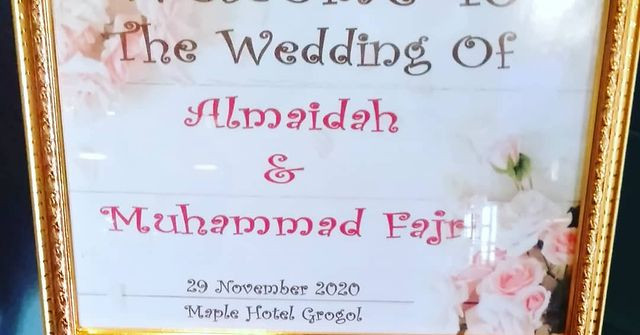 Welcome To
The Wedding Of
Almaidah
&
Muhammad Fajri
29 November 2020
Maple Hotel Grogol